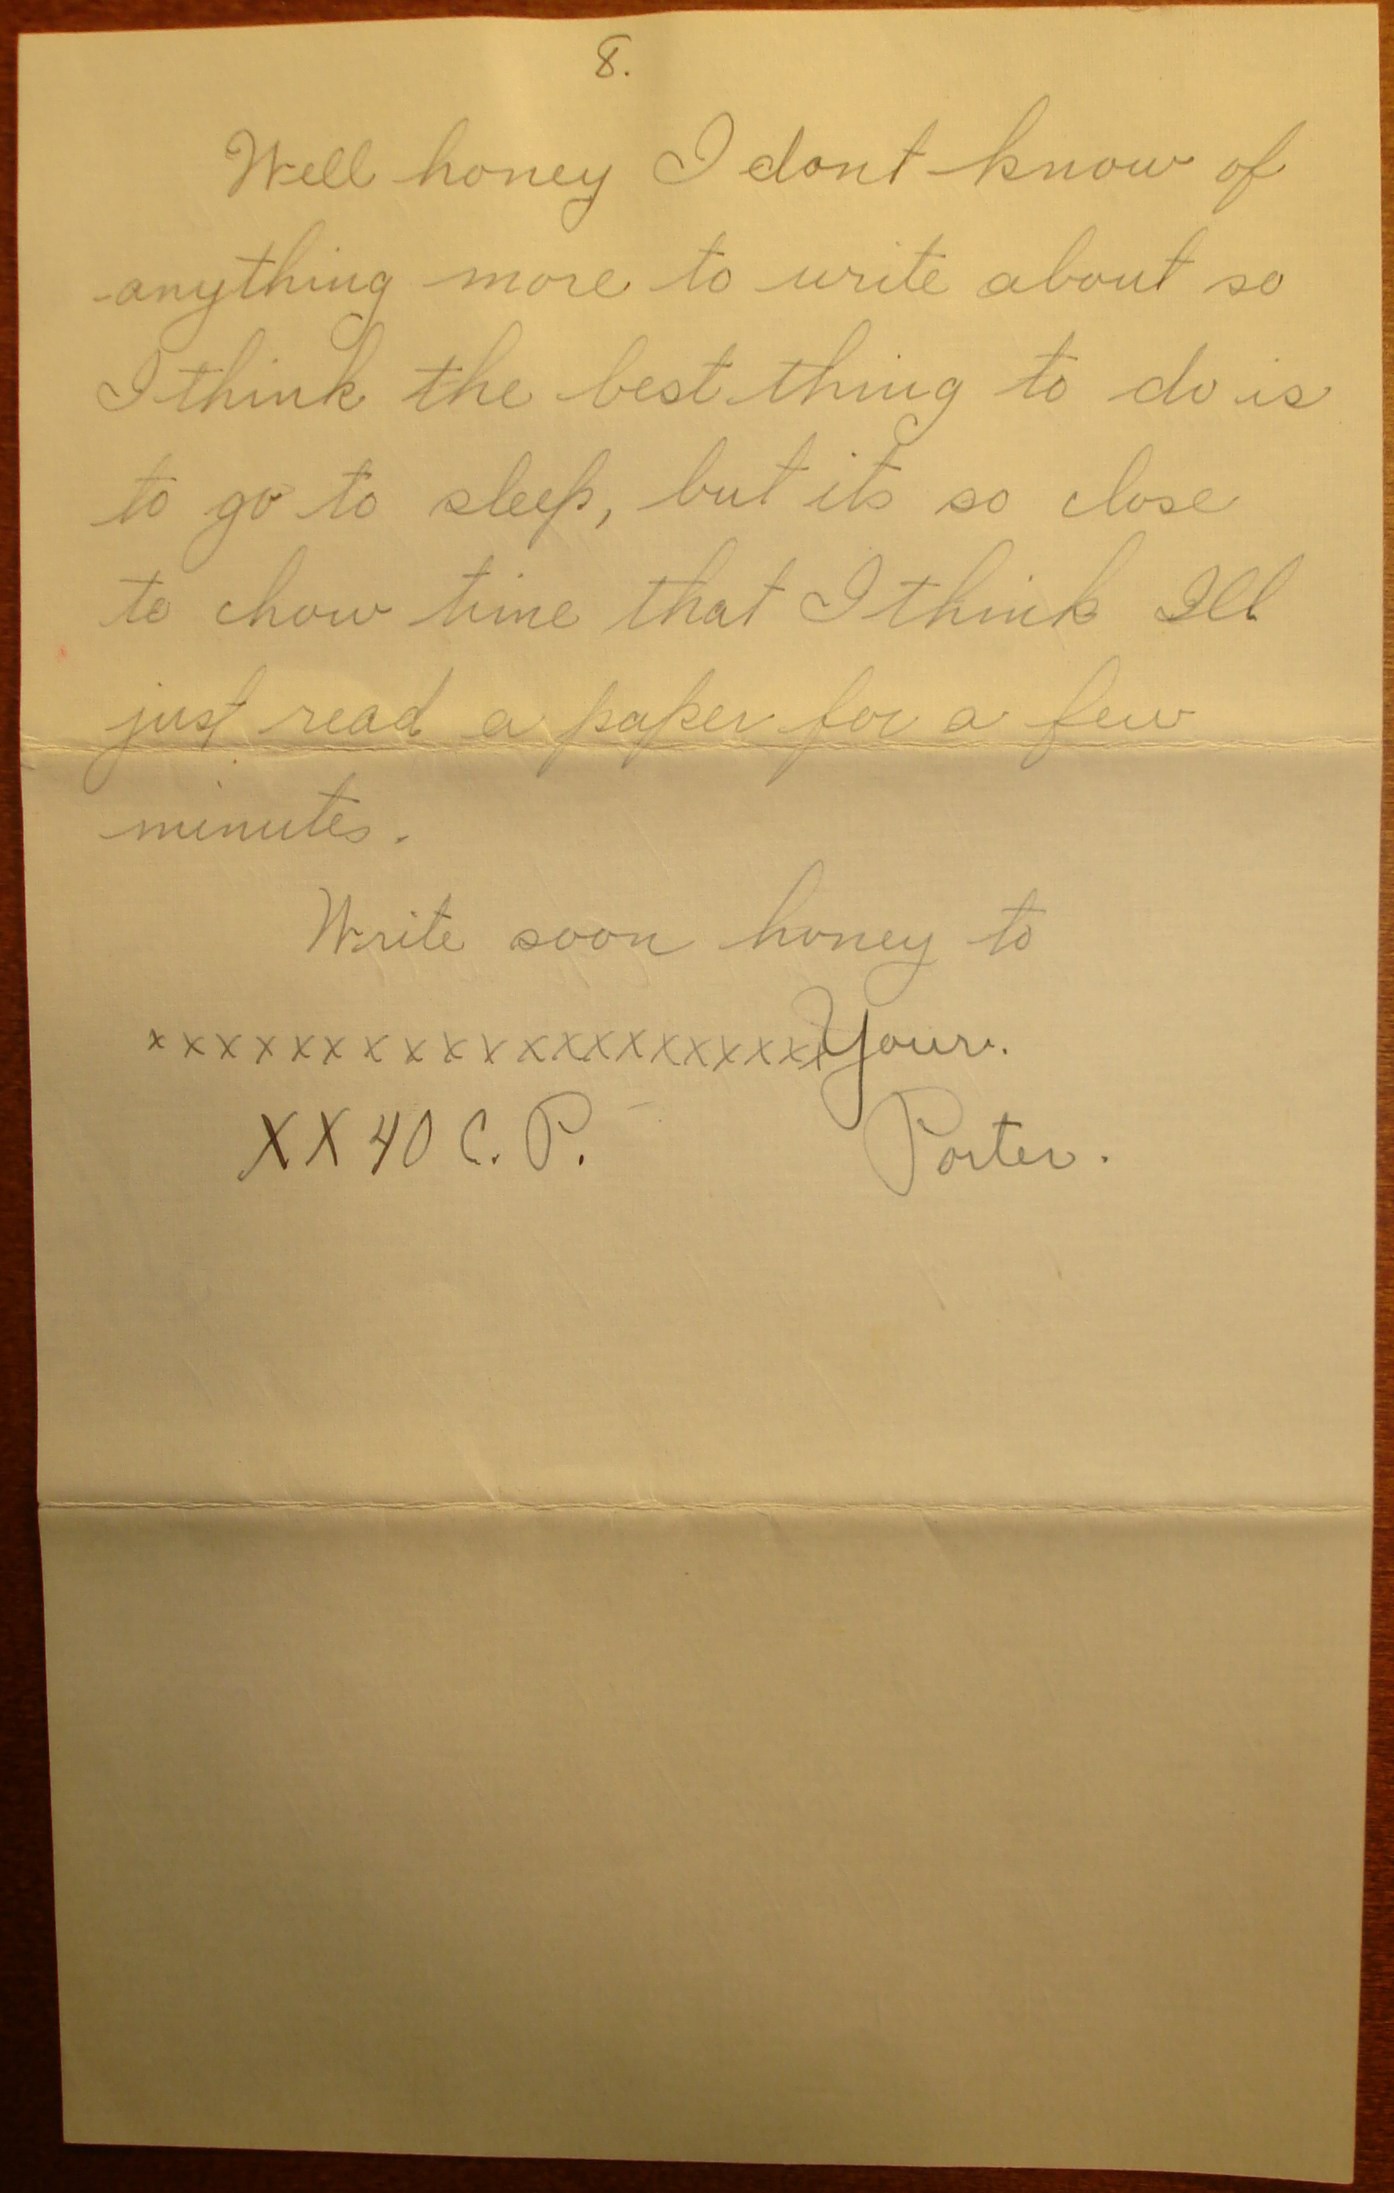 8.
Well honey I dont know of
anything more to write about so
I think the best thing to do is
to go to sleep, but its so close
to chow time that I think Ill
just read a paper for a few
minutes.
Write soon honey to
xxxxxxxxxxxxxxxxxxxx Your.
XX40 C. P. Porter.